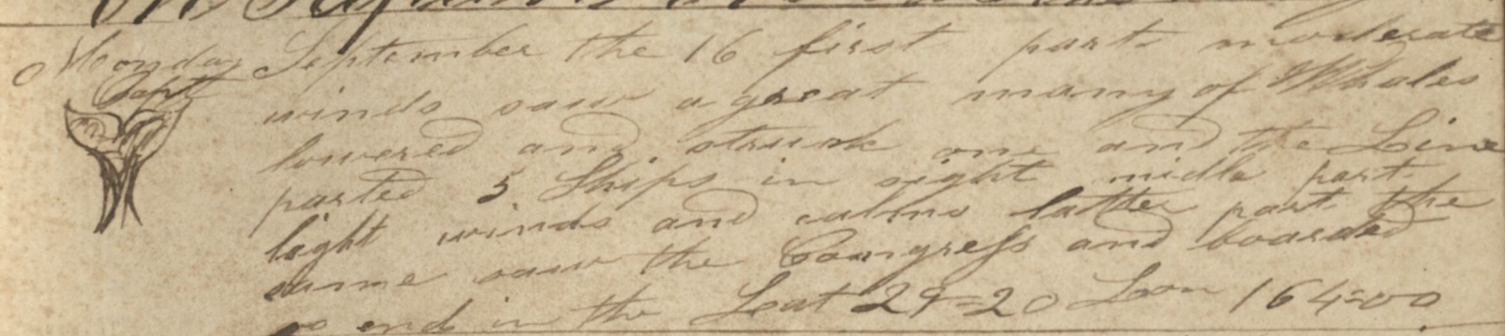 Monday September the 16 first part moderate
Sept winds saw a great many of Whales
lowered and struck one and the Line
parted 5 Ships in sight midle part
light winds and calms latter part the
same saw the Congress and boarded
so end in the Lat 29=20 Lon 164=00